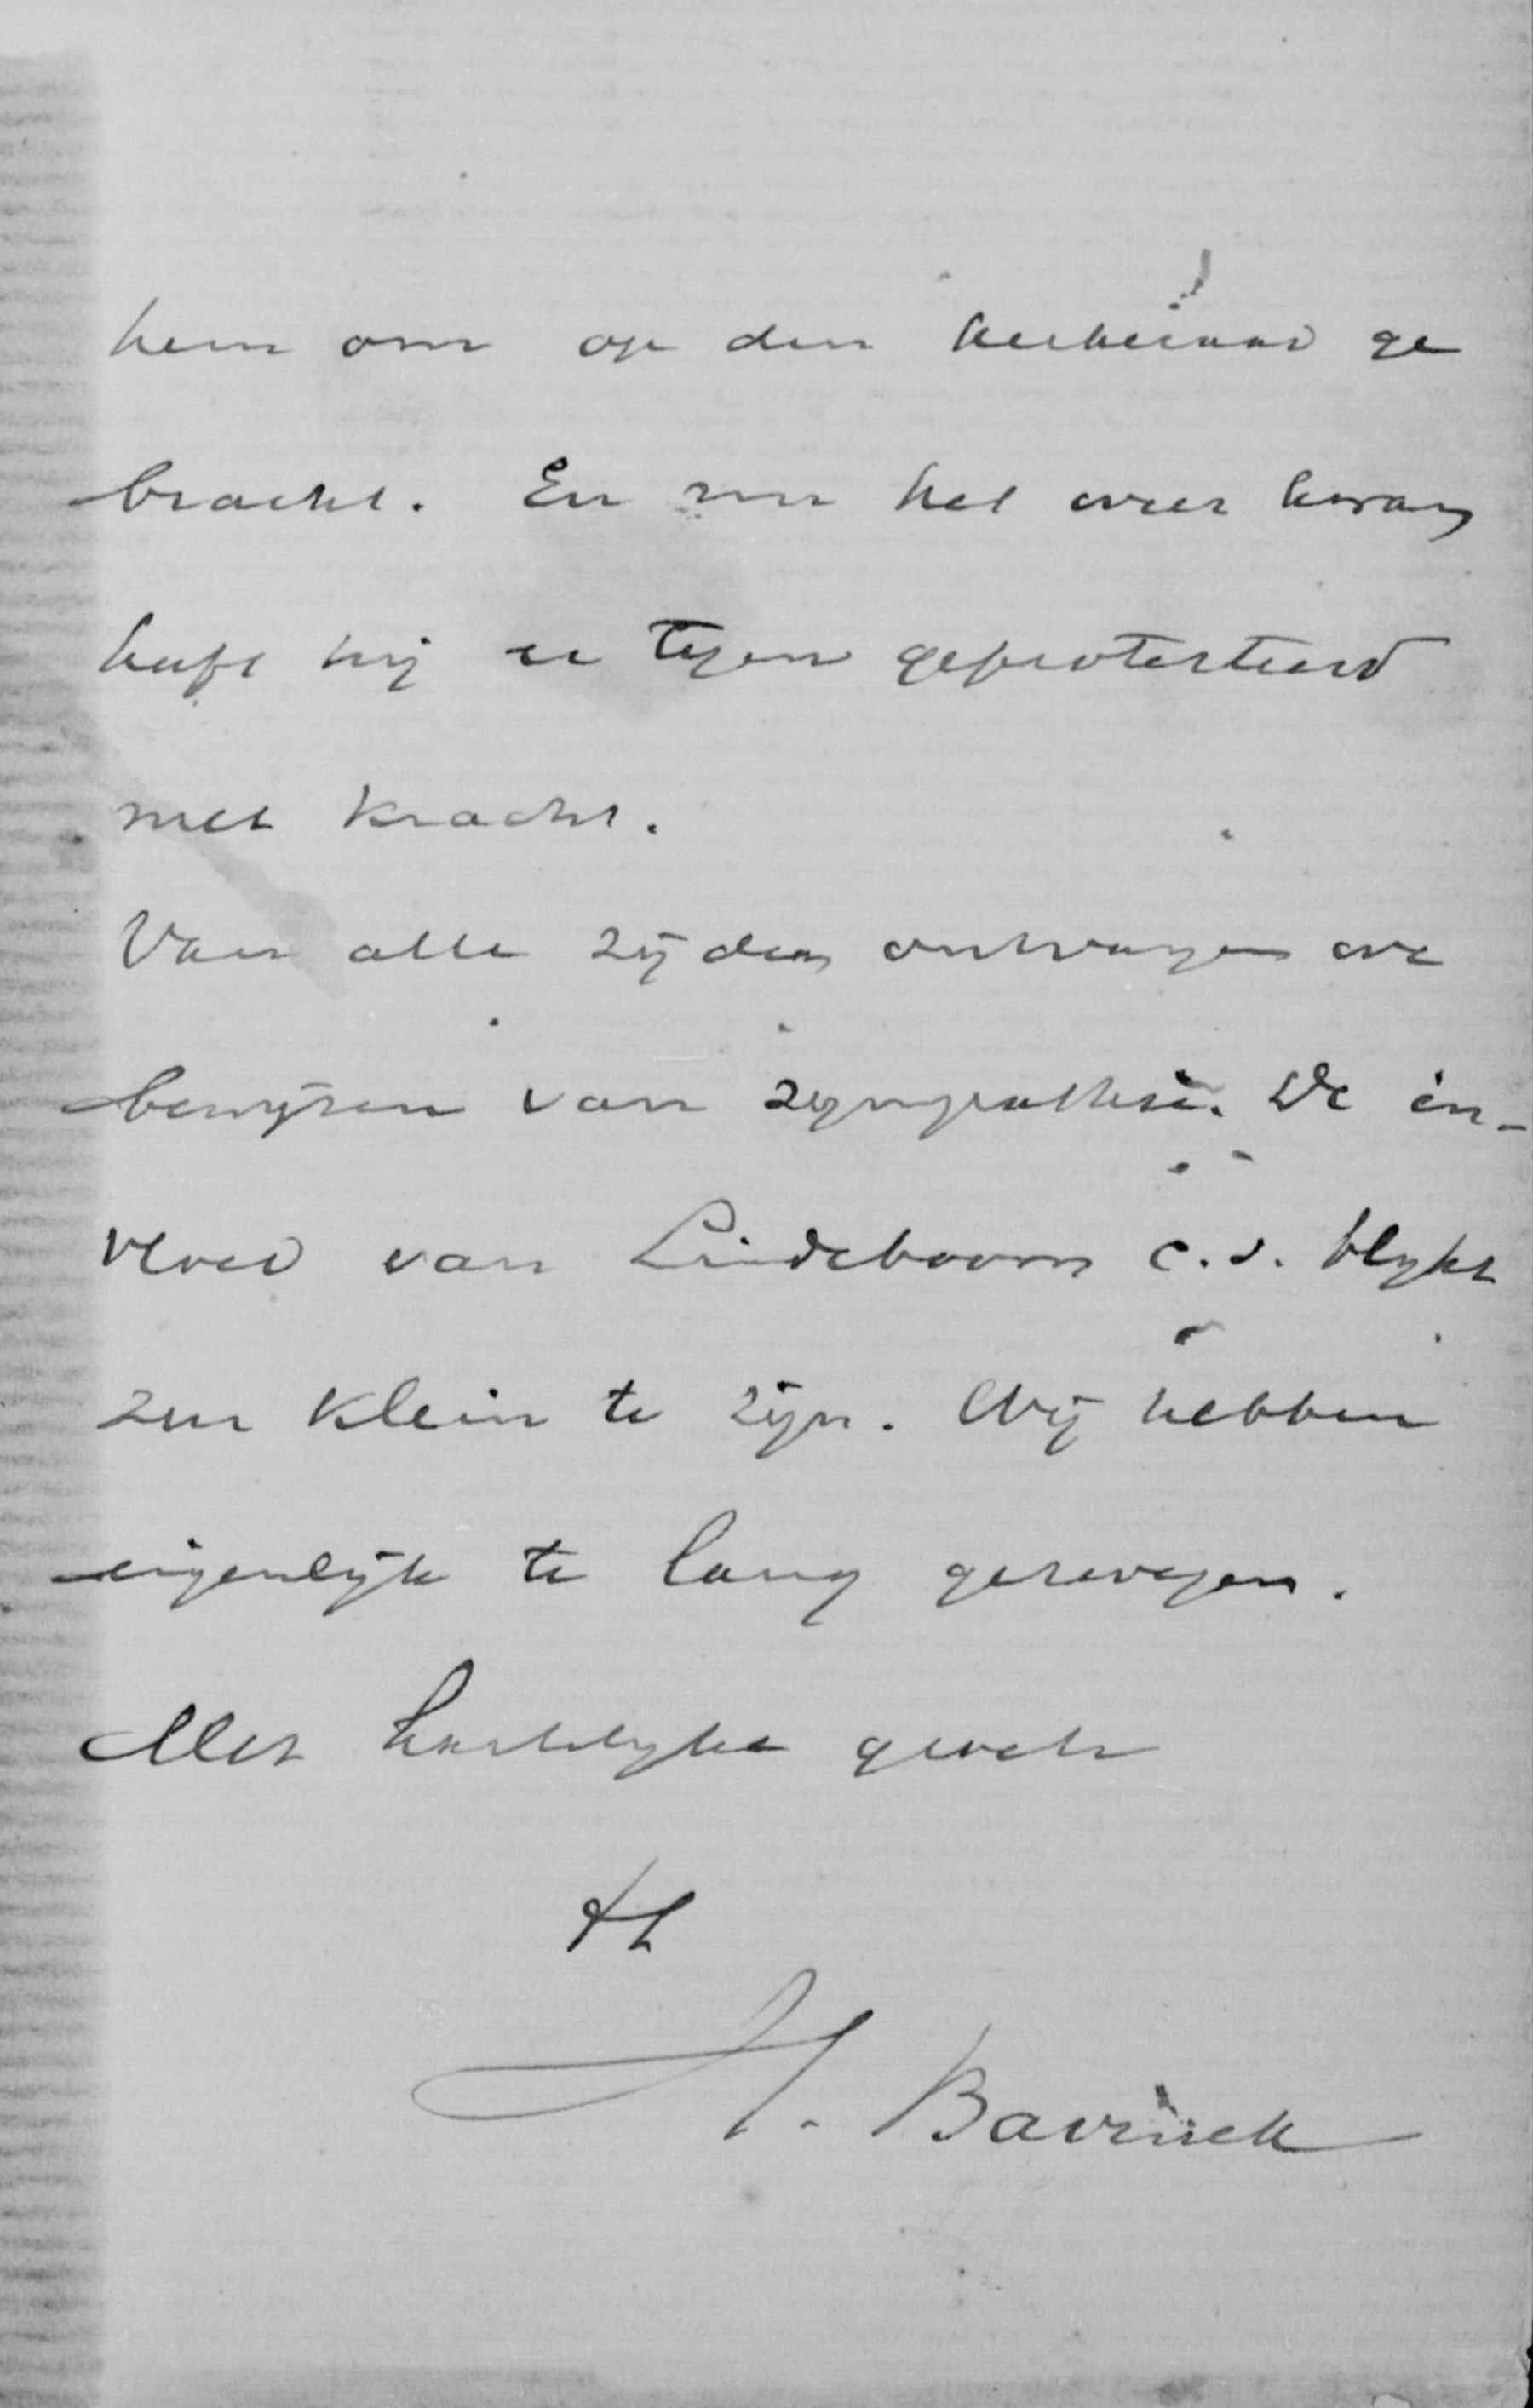 hem om op den kerkeraad ge
bracht. En nu het over kwam
heeft hij er tegen geprotesteerd
met kracht.
Van alle zijden ontvangen we
bewijzen van sympathie. De in-
vloed van Lindeboom c.s. blijkt
zeer klein te zijn. Wij hebben
eigenlijk te lang gezwegen.
Met hartelijke groete
tt
H. Bavinck